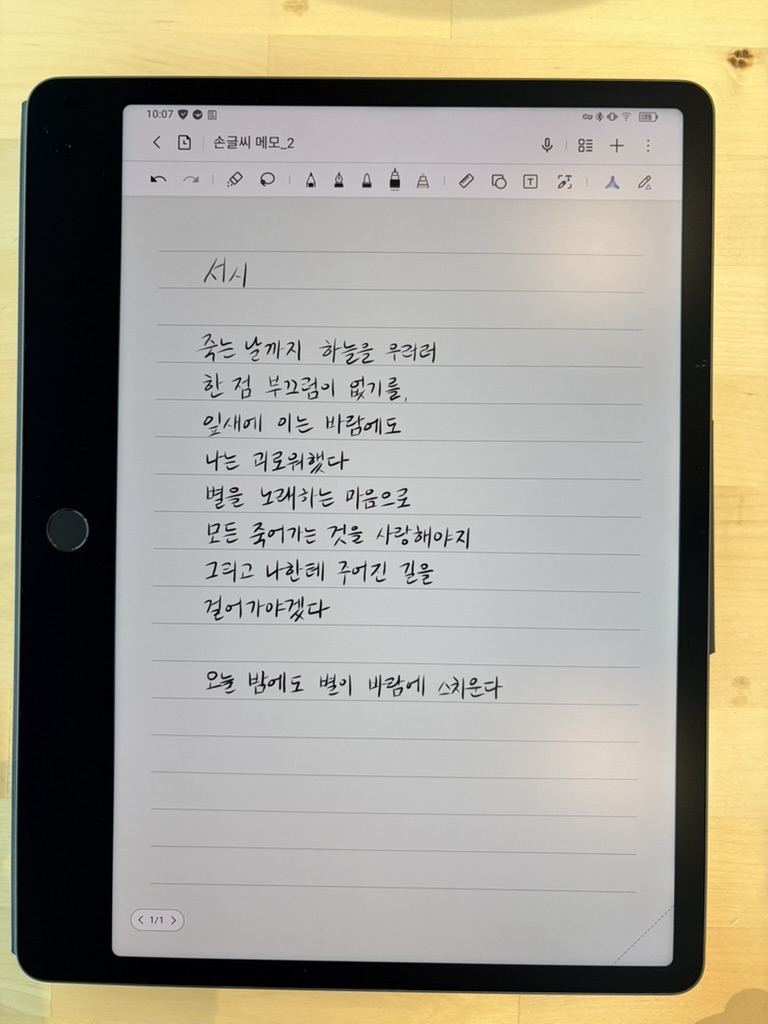 10:07
손글씨 메모_2
서시
죽는 날까지 하늘을 우러러
한 점 부끄럼이 없기를,
잎새에 이는 바람에도
나는 괴로워했다
별을 노래하는 마음으로
모든 죽어가는 것을 사랑해야지
그리고 나한테 주어진 길을
걸어가야겠다
오늘 밤에도 별이 바람에 스치운다
1/1